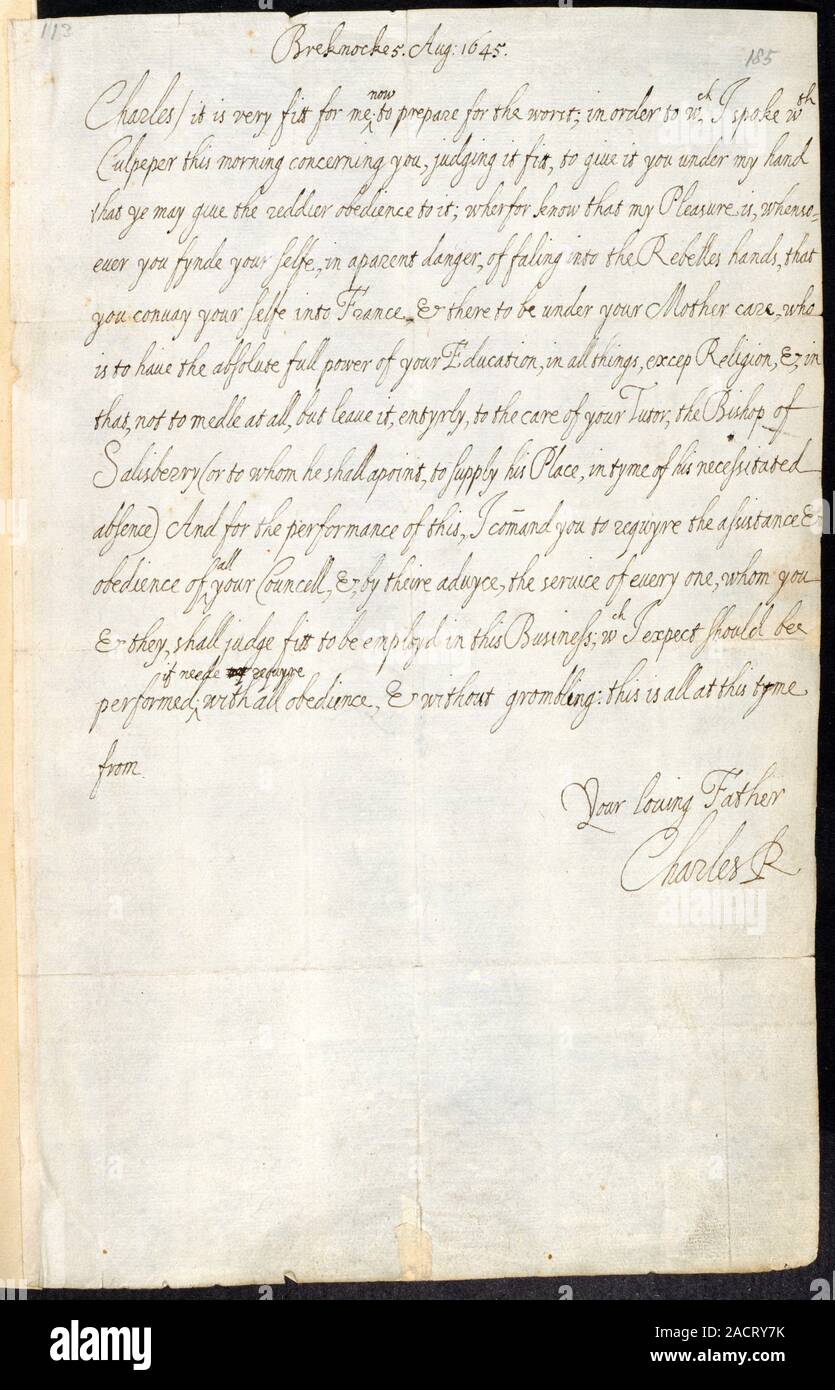 113
Breknocke 5. Aug: 1645.
185
now
Charles/ it is very fitt for me to prepare for the worst; in order to wch I spoke wth
Culpeper this morning concerning you, judging it fitt, to give it you under my hand
that ye may giue the reddier obedience to it; wherfor know that my Pleasure is, whenso=
euer you fynde your selfe, in aparent danger, of faling into the Rebelles hands, that
you convay your selfe into France, & there to be under your Mother care, who
is to haue the absolute full power of your Education, in all things, excep Religion, &, in
that, not to medle at all, but leaue it, entyrly, to the care of your Tutor, the Bishop of
Salisberry (or to whom he shall apoint, to supply his Place, in tyme of his necessitated
absence) And for the performance of this, I com̄and you to requyre the asistance &
all
obedience of your Councell, &, by theire aduyce, the seruice of euery one, whom you
& they, shall judge fitt to be employd in this Business; wch I expect should bee
if neede requyre
performed, with all obedience, & without grombling: this is all at this tyme
from.
Your louing Father
Charles R
alamy
Image ID: 2ACRY7K
www.alamy.com